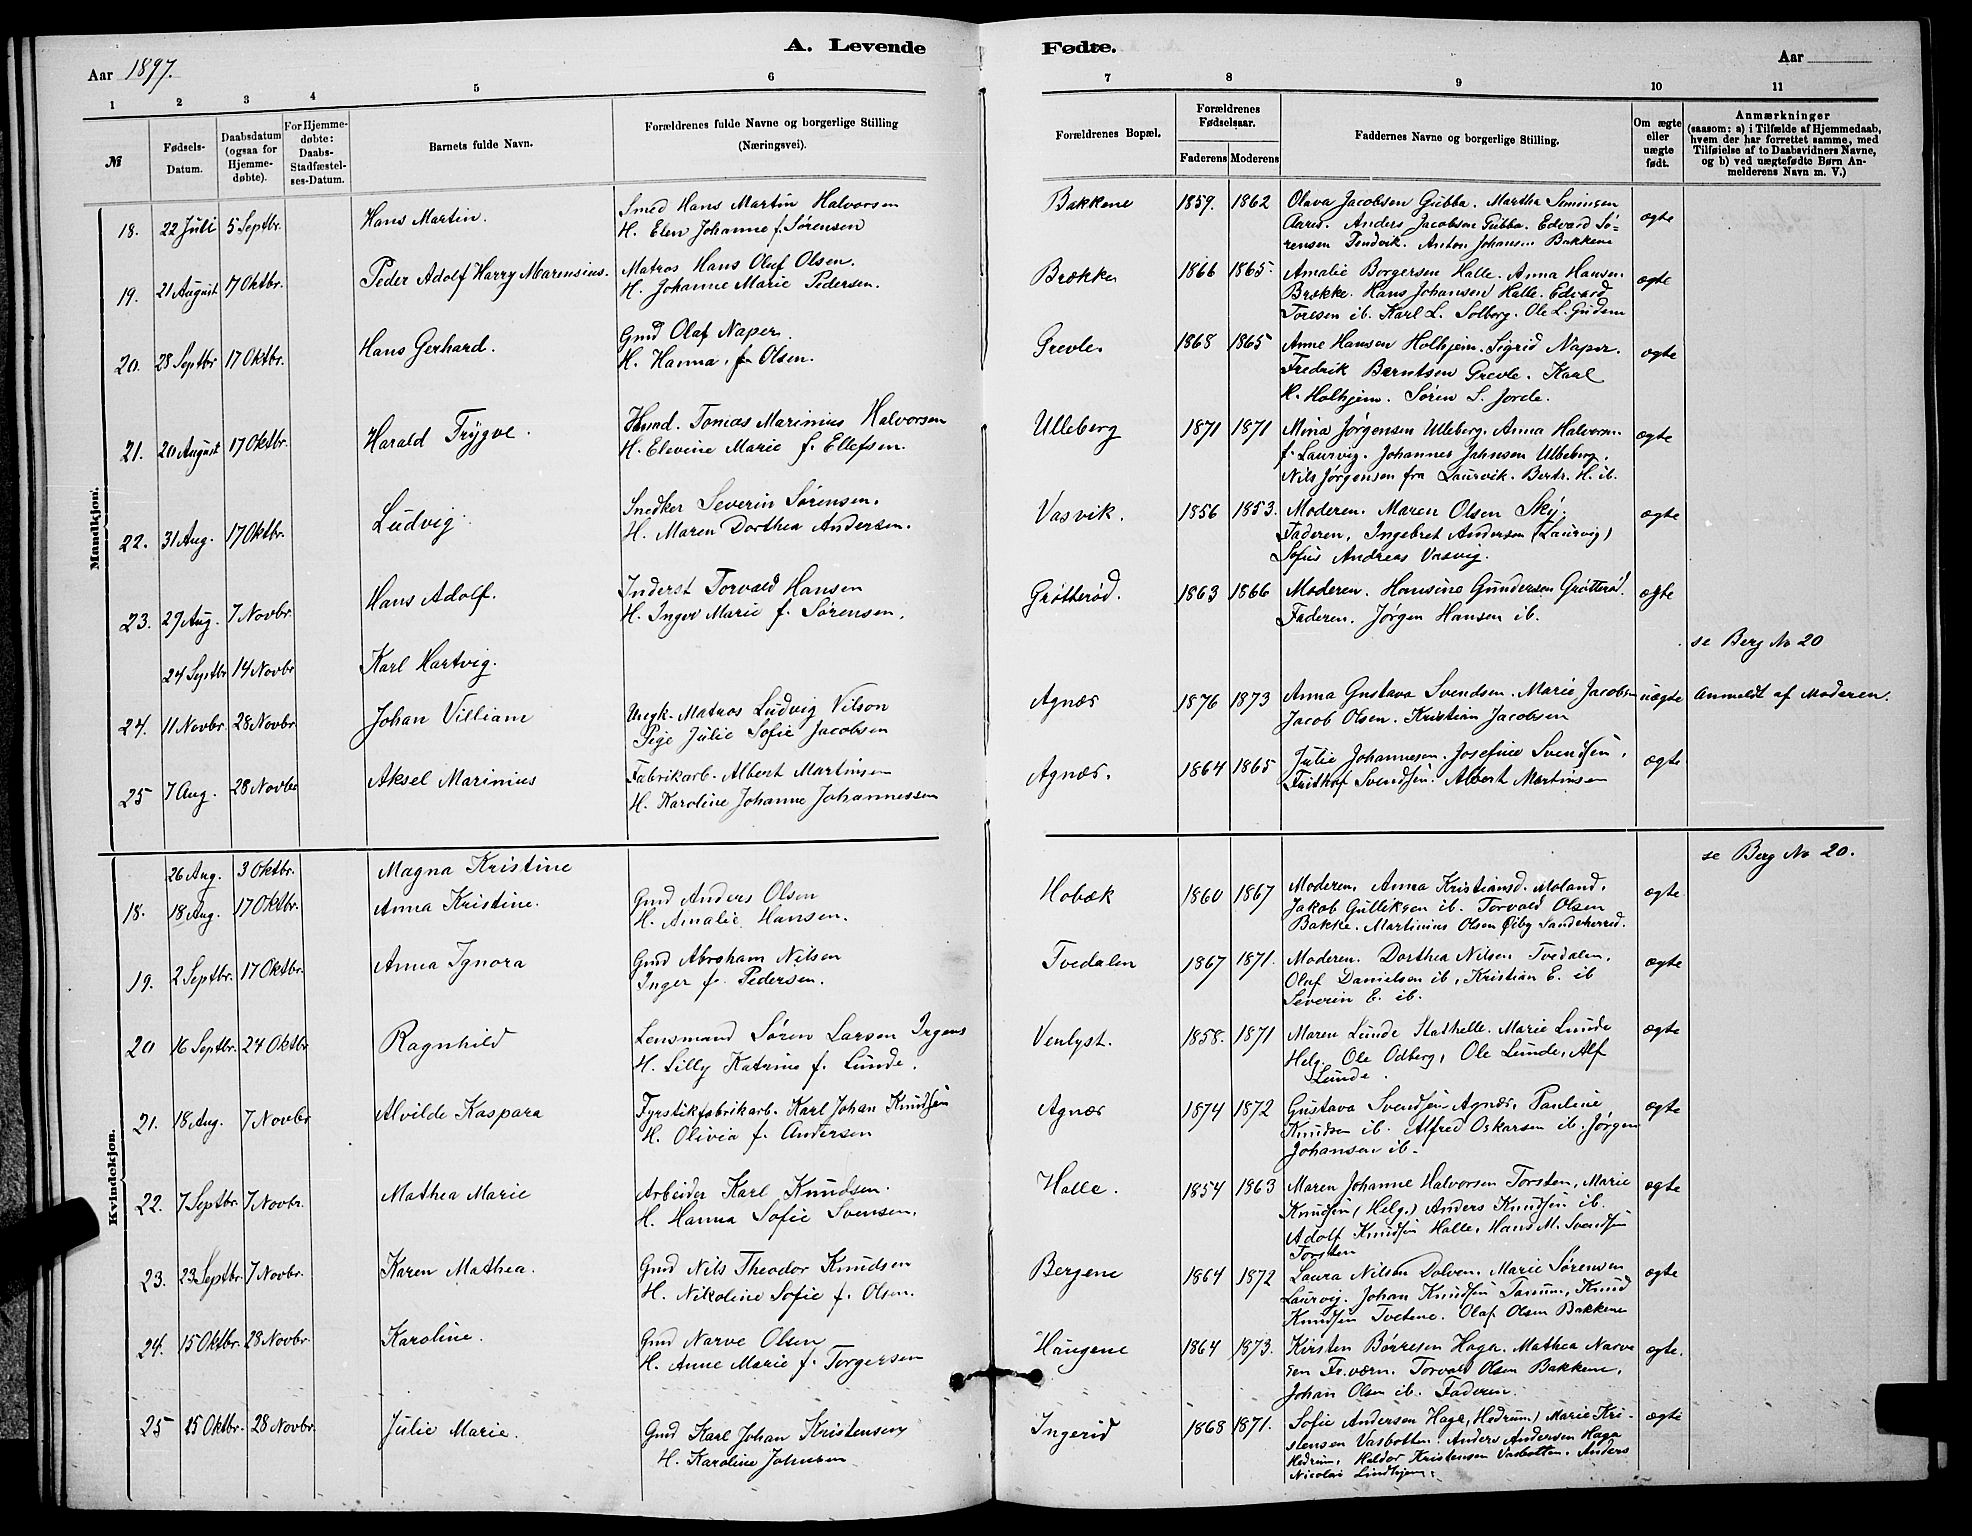 A. Levende Fødte.
Aar 1897.
Aar
1 2 3 4 5 6 7 8 9 10 11
№
Fødsels-Datum.
Daabsdatum (ogsaa for Hjemmedøbte).
For Hjemmedøbte: Daabs-Stadfæstelses-Datum.
Barnets fulde Navn.
Forældrenes fulde Navne og borgerlige Stilling
(Næringsvei).
Forældrenes Bopæl.
Forældrenes Fødselsaar.
Faderens Moderens
Faddernes Navne og borgerlige Stilling.
Om ægte eller uægte født.
Anmærkninger
(saasom: a) i Tilfælde af Hjemmedaab,
hvem der har forrettet samme, med
Tilføielse af to Daabsvidners Navne,
og b) ved uægtefødte Børn Anmelderens Navn m. V.)
Mandkjøn.
18. 22 Juli 5 Septbr. Hans Martin. Smed Hans Martin Halvorsen
H. Elen Johanne f. Sørensen
Bakkene 1859. 1862 Olava Jacobsen Gubba. Martha Simonsen
Aarø. Anders Jacobsen Gubba. Edvard Sø-
rensen Tendvik. Anton Johans... Bakkene
ægte
19. 21 August 17 Oktbr. Peder Adolf Harry Marensius. Matros Hans Oluf Olsen.
H. Johanne Marie Pedersen.
Brække 1866 1865. Amalie Borgersen Halle. Anna Hansen
Brække. Hans Johansen Halle. Edvard
Toresen ib. Karl L. Solberg. Ole L. Gudem
ægte
20. 28 Septbr 17 Oktbr. Hans Gerhard. Gmd Olaf Naper.
H. Hanna, f. Olsen.
Grevle. 1868 1865 Anne Hansen Holhjem. Sigrid Naper.
Fredrik Berntsen Grevle. Karl
H. Holhjem. Søren S. Jorde.
ægte
21. 20 August 17 Oktbr. Harald Trygve. Tomas Marinius Halvorsen
H. Elevine Marie f. Ellefsen.
Ulleberg 1871 1871 Mina Jørgensen Ulleberg. Anna Halvorsen
f. Laurvig. Johannes Jahnsen Ulleberg.
Nils Jørgensen fra Laurvik. Bertr. H. ib.
ægte
22. 31 Aug. 17 Oktbr. Ludvig. Snedker Severin Sørensen.
H. Maren Dorthea Andersen.
Vasvik. 1856 1853. Moderen. Maren Olsen Skj.
Faderen, Ingebret Andersen (Laurvig)
Sofus Andreas Vasvig.
ægte
23. 29 Aug. 7 Novbr Hans Adolf. Inderst Torvald Hansen
H. Inger Marie f. Sørensen.
Grøtterød. 1863 1866 Moderen. Hansine Gundersen Grøtterød.
Faderen. Jørgen Hansen ib.
ægte
24 Septbr 14 Novbr Karl Hartvig. se Berg No 20
24. 11 Novbr. 28 Novbr Johan Villiam Ungk. Matros Ludvig Nilson
Pige Julie Sofie Jacobsen
Agnæs 1876 1873 Anna Gustava Svendsen. Marie Jacobsen
Jacob Olsen. Kristian Jacobsen
uægte Anmeldt af Moderen.
25 7 Aug. 28 Novbr Aksel Marinius Fabrikarb. Albert Martinsen
H. Karoline Johanne Johannessen
Agnæs. 1864 1865 Julie Johannesen. Josefine Svendsen.
Fridthof Svendsen. Albert Martinsen
ægte
Kvindekjøn.
26 Aug. 3 Oktbr. Magna Kristine se Berg No 20.
18. 18 Aug. 17 Oktbr. Anna Kristine. Gmd Anders Olsen
H. Amalie Hansen.
Hobæk 1860 1867 Moderen, Anna Kristiansd. Moland.
Jakob Gulliksen ib. Torvald Olsen
Bakke. Martinius Olsen Øiby Sandeherred.
ægte
19. 2 Septbr. 17 Oktbr. Anna Ignora Gmd Abraham Nilsen
Inger f. Pedersen.
Tvedalen 1867 1871. Moderen. Dorthea Nilsen Tvedalen,
Oluf Danielsen ib, Kristian E. ib
Severin E. ib.
ægte
20 16 Septbr. 24 Oktbr Ragnhild Lensmand Søren Larsen Irgens
H. Lilly Katrine f. Lunde.
Venlyst. 1858. 1871 Maren Lunde Stathelle. Marie Lunde
Helg. Ole Odberg, Ole Lunde, Alf
Lunde.
ægte
21. 18 Aug. 7 Novbr Alvilde Kaspara Fyrstikfabrikarb. Karl Johan Knudsen
H. Olivia f. Andersen
Agnæs 1874 1872 Gustava Svendsen Agnæs, Pauline
Knudsen ib. Alfred Oskarsen ib. Jørgen
Johansen ib.
ægte
22. 7 Septbr. 7 Novbr. Mathea Marie Arbeider Karl Knudsen.
H. Hanna Sofie Svensen.
Halle. 1854 1863 Maren Johanne Halvorsen Torsten, Marie
Knudsen (Helg.) Anders Knudsen ib.
Adolf Knudsen Halle, Hans M. Svendsen
Torsten
ægte
23. 23 Septbr. 7 Novbr. Karen Mathea. Gmd Nils Theodor Knudsen
H. Nikoline Sofie f. Olsen.
Bergene 1864 1872 Laura Nilsen Dolven. Marie Sørensen
Laurvig. Johan Knudsen Tanum, Knud
Knudsen Tvetene. Olaf Olsen Bakkene
ægte
24. 15 Oktbr. 28 Novbr. Karoline. Gmd Narve Olsen
H. Anne Marie f. Torgersen
Haugene 1864 1873. Kirsten Børresen Haga. Mathea Narve
sen Fr.værn. Torvald Olsen Bakkene,
Johan Olsen ib. Faderen.
ægte.
25 15 Oktbr. 28 Novbr. Julie Marie. Gmd Karl Johan Kristensen
H. Karoline Johnsen
Ingerid 1868 1871. Sofie Andersen Haga, Hedrum) Marie Kri-
stensen Vasbotten. Anders Andersen Haga
Hedrum, Haldor Kristensen Vasbotten. Anders
Nicolai Lindhjem.
ægte